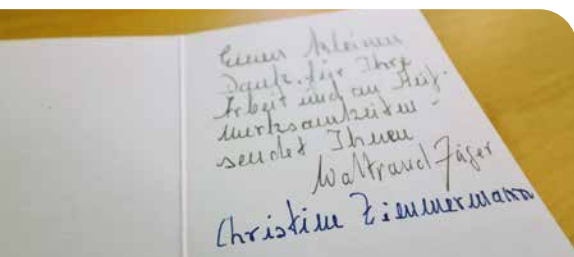 Einen kleinen
Dank für Ihre
Arbeit und an Auf-
merksamkeiten -
sendet Ihnen
Waltraud Jäger
Christine Zimmermann